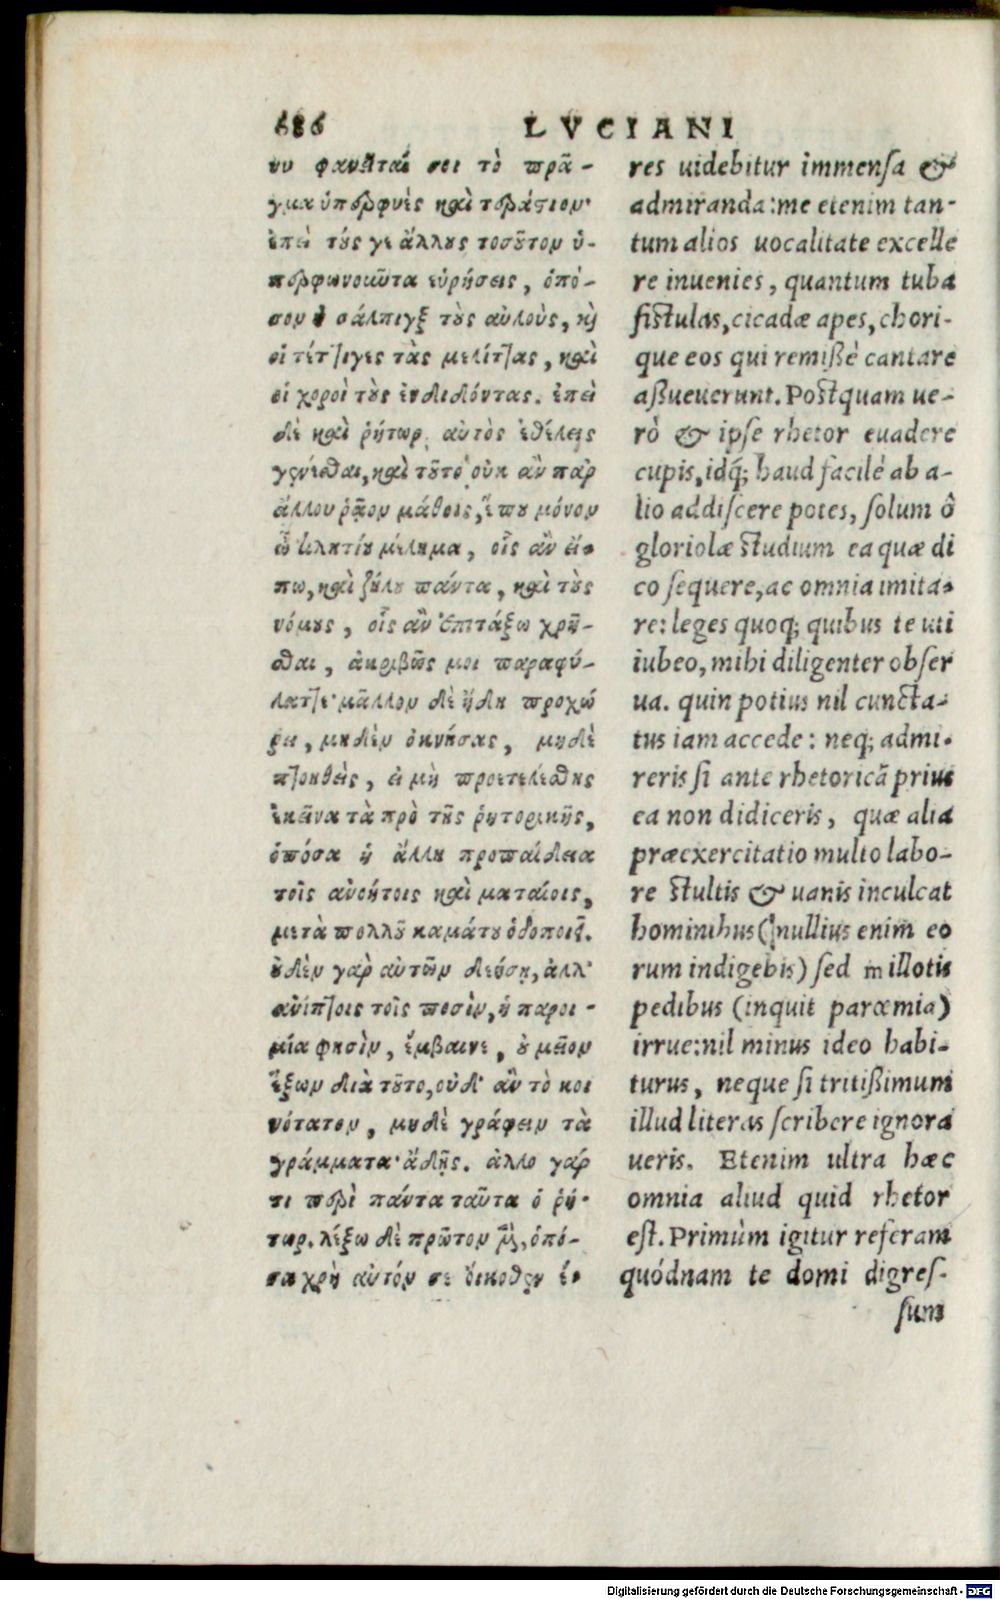 686
LVCIANI
νυ φανεῖταί σοι τὸ πρᾶ-
γμα ὑπερφυὲς καὶ τεράστιον·
ἐπεὶ τούς γε ἄλλους τοσοῦτον ὑ-
περφωνοῦντα εὑρήσεις, ὁπό-
σον ἡ σάλπιγξ τοὺς αὐλοὺς, καὶ
οἱ τέττιγες τὰς μελίττας, καὶ
οἱ χοροὶ τοὺς ἐνδιδόντας. ἐπεὶ
δὲ καὶ ῥήτωρ αὐτὸς ἐθέλεις
γενέσθαι, καὶ τοῦτο οὐκ ἂν παρ
ἄλλου ῥᾷον μάθοις, ἕπου μόνον
ὦ μέλημα, οἷς ἂν εἴ-
πω, καὶ ζήλου πάντα, καὶ τοὺς
νόμους, οἷς ἂν ἐπιτάξω χρῆ-
σθαι, ἀκριβῶς μοι παραφύ-
λαττε· μᾶλλον δὲ ἤδη προχώ
ρει, μηδὲν ὀκνήσας, μηδὲ
πτοηθεὶς, εἰ μὴ προετελέσθης
ἐκεῖνα τὰ πρὸ τῆς ῥητορικῆς,
ὁπόσα ἡ ἄλλη προπαίδεια
τοῖς ἀνοήτοις καὶ ματαίοις,
μετὰ πολλοῦ καμάτου ὁδοποιεῖ.
οὐδὲν γὰρ αὐτῶν δεήσῃ, ἀλλ'
ἀνίπτοις τοῖς ποσὶν, ἡ παροι-
μία φησὶν, ἔμβαινε, οὐ μεῖον
ἕξων διὰ τοῦτο, οὐδ' ἂν τὸ κοι
νότατον, μηδὲ γράφειν τὰ
γράμματα· εἰδῇς. ἄλλο γάρ
τι περὶ πάντα ταῦτα ὁ ῥή-
τωρ. λέξω δὲ πρῶτον μὲν, ὁπό-
σα χρὴ αὐτόν σε οἴκοθεν ἔ-
res uidebitur immensa &
admiranda:me etenim tan-
tum alios uocalitate excelle
re inuenies, quantum tuba
fistulas, cicadæ apes, chori-
que eos qui remißè cantare
aßueuerunt. Postquam ue-
rò & ipse rhetor euadere
cupis, idq́; haud facilè ab a-
lio addiscere potes, solum ô
gloriolæ studium ea quæ di
co sequere, ac omnia imita-
re: leges quoq; quibus te uti
iubeo, mihi diligenter obser
ua. quin potius nil cuncta-
tus iam accede: neq; admi-
reris si ante rhetoricā prius
ea non didiceris, quæ alia
præexercitatio multo labo-
re stultis & uanis inculcat
hominibus (nullius enim eo
rum indigebis) sed m illotis
pedibus (inquit parœmia)
irrue:nil minus ideo habi-
turus, neque si tritißimum
illud literas scribere ignora
ueris. Etenim ultra hæc
omnia aliud quid rhetor
est. Primùm igitur referam
quódnam te domi digres-
sum
Digitalisierung gefördert durch die Deutsche Forschungsgemeinschaft - DFG